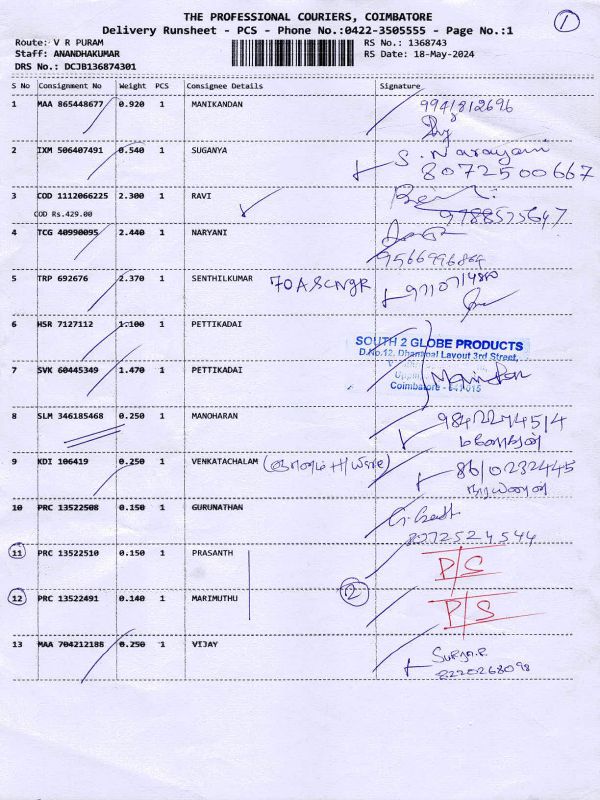 THE PROFESSIONAL COURIERS, COIMBATORE
1
Delivery Runsheet - PCS - Phone No.:0422-3505555 - Page No.:1
Route: V R PURAM
RS No.: 1368743
Staff: ANANDHAKUMAR
RS Date: 18-May-2024
DRS No.: DCJB136874301
S No Consignment No Weight PCS Consignee Details Signature
1 MAA 865448677 0.920 1 MANIKANDAN 9941812696
2 IXM 506407491 0.540 1 SUGANYA S. Narayani
8072500667
3 COD 1112066225 2.300 1 RAVI
COD Rs.429.00 9788575647
4 TCG 40990095 2.440 1 NARYANI
9566996864
5 TRP 692676 2.370 1 SENTHILKUMAR 70 A SCNGR
6 HSR 7127112 1.100 1 PETTIKADAI
SOUTH 2 GLOBE PRODUCTS
D.No.12, Dhanpal Layout 3rd Street,
7 SVK 60445349 1.470 1 PETTIKADAI
Coimbatore - 641 015
8 SLM 346185468 0.250 1 MANOHARAN 9842274514
மனோகரன்
9 KDI 106419 0.250 1 VENKATACHALAM H/Ware) 8610232445
10 PRC 13522508 0.150 1 GURUNATHAN
8072524544
11 PRC 13522510 0.150 1 PRASANTH P/S
12 PRC 13522491 0.140 1 MARIMUTHU 2 P/S
13 MAA 704212188 0.250 1 VIJAY Surya.R
8220268098